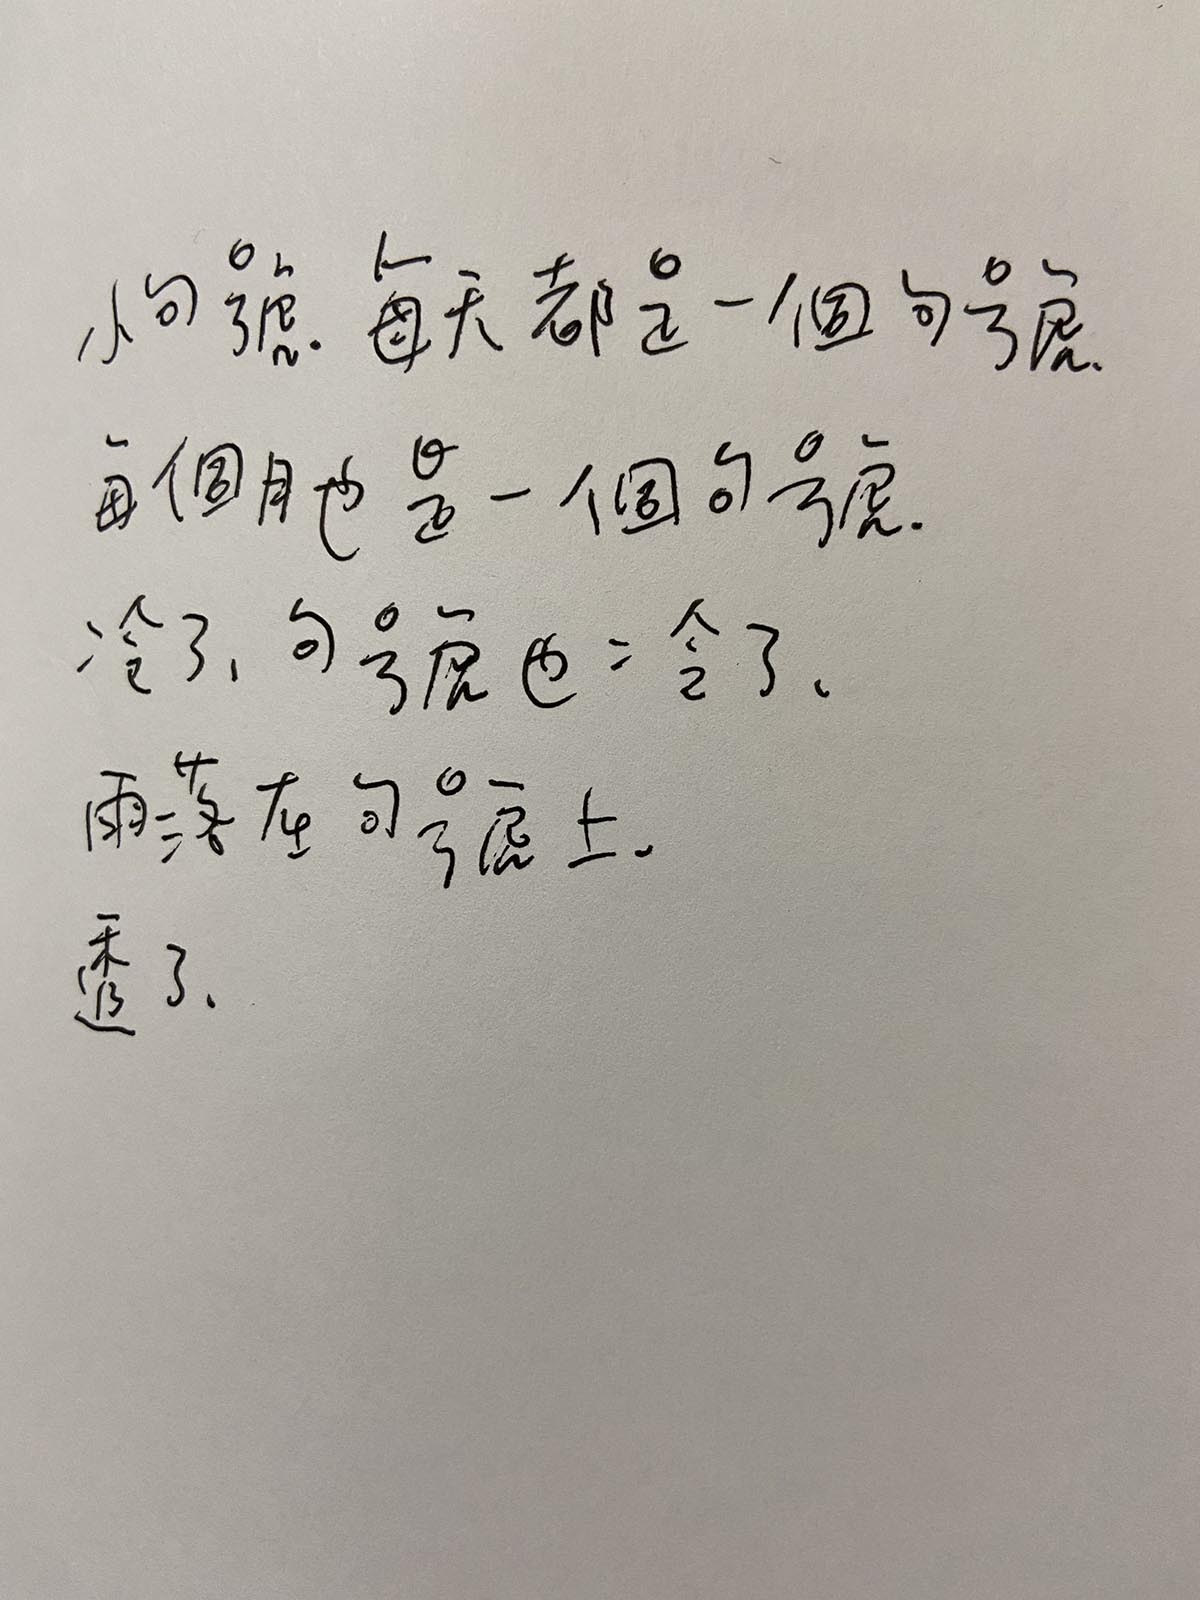 小句號.每天都是一個句號.
每個月也是一個句號.
冷了,句號也冷了.
雨落在句號上.
透了.